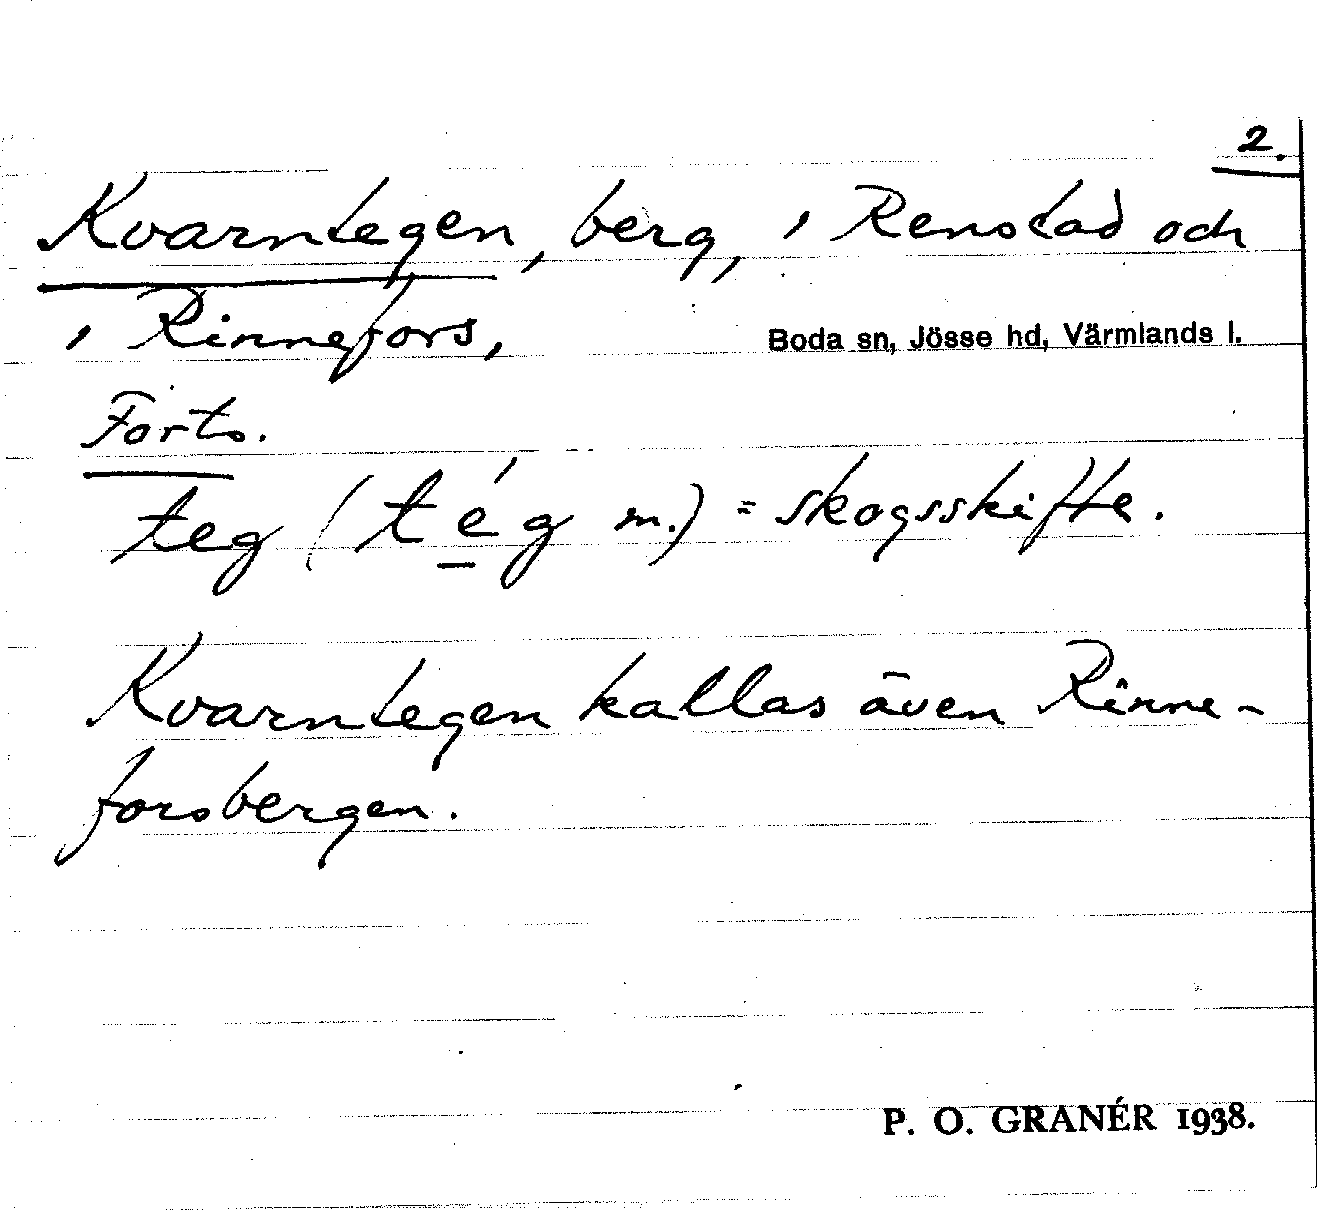 2.
Kvarntegen, berg, i Renstad och
i Rinnefors,
Boda sn, Jösse hd, Värmlands l.
Forts.
teg (té̠g m.) = skogsskifte.
Kvarntegen kallas även Rinne-
forsbergen.
P. O. GRANÉR 1938.